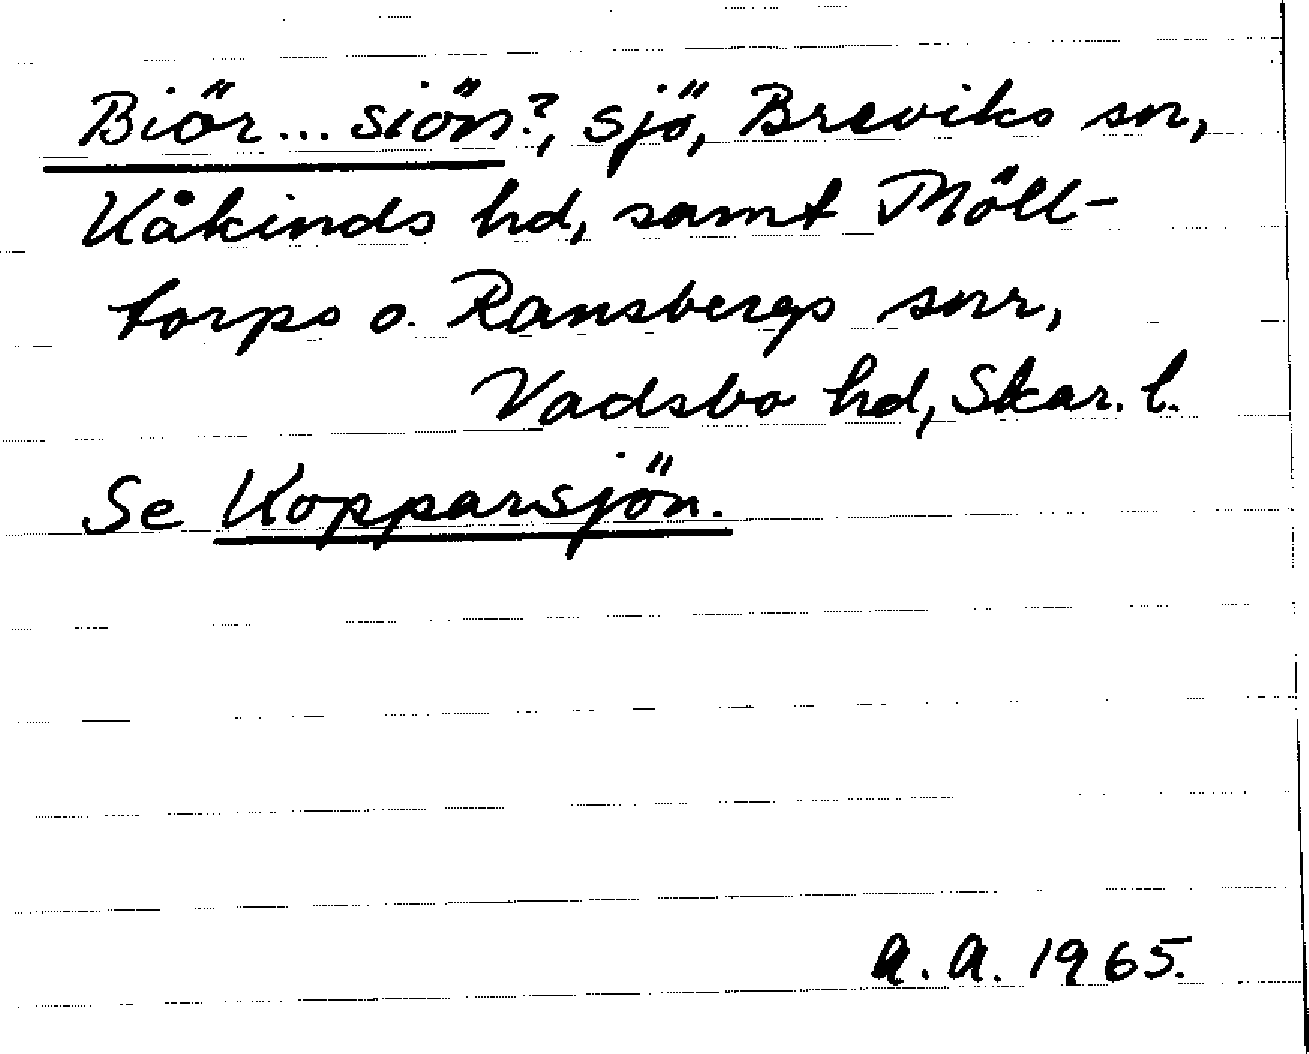 Biör... siön?, sjö, Breviks sn,
Kåkinds hd, samt Möll-
torps o. Ransbergs snr,
Vadsbo hd, Skar. l.
Se Kopparsjön.
A.A. 1965.